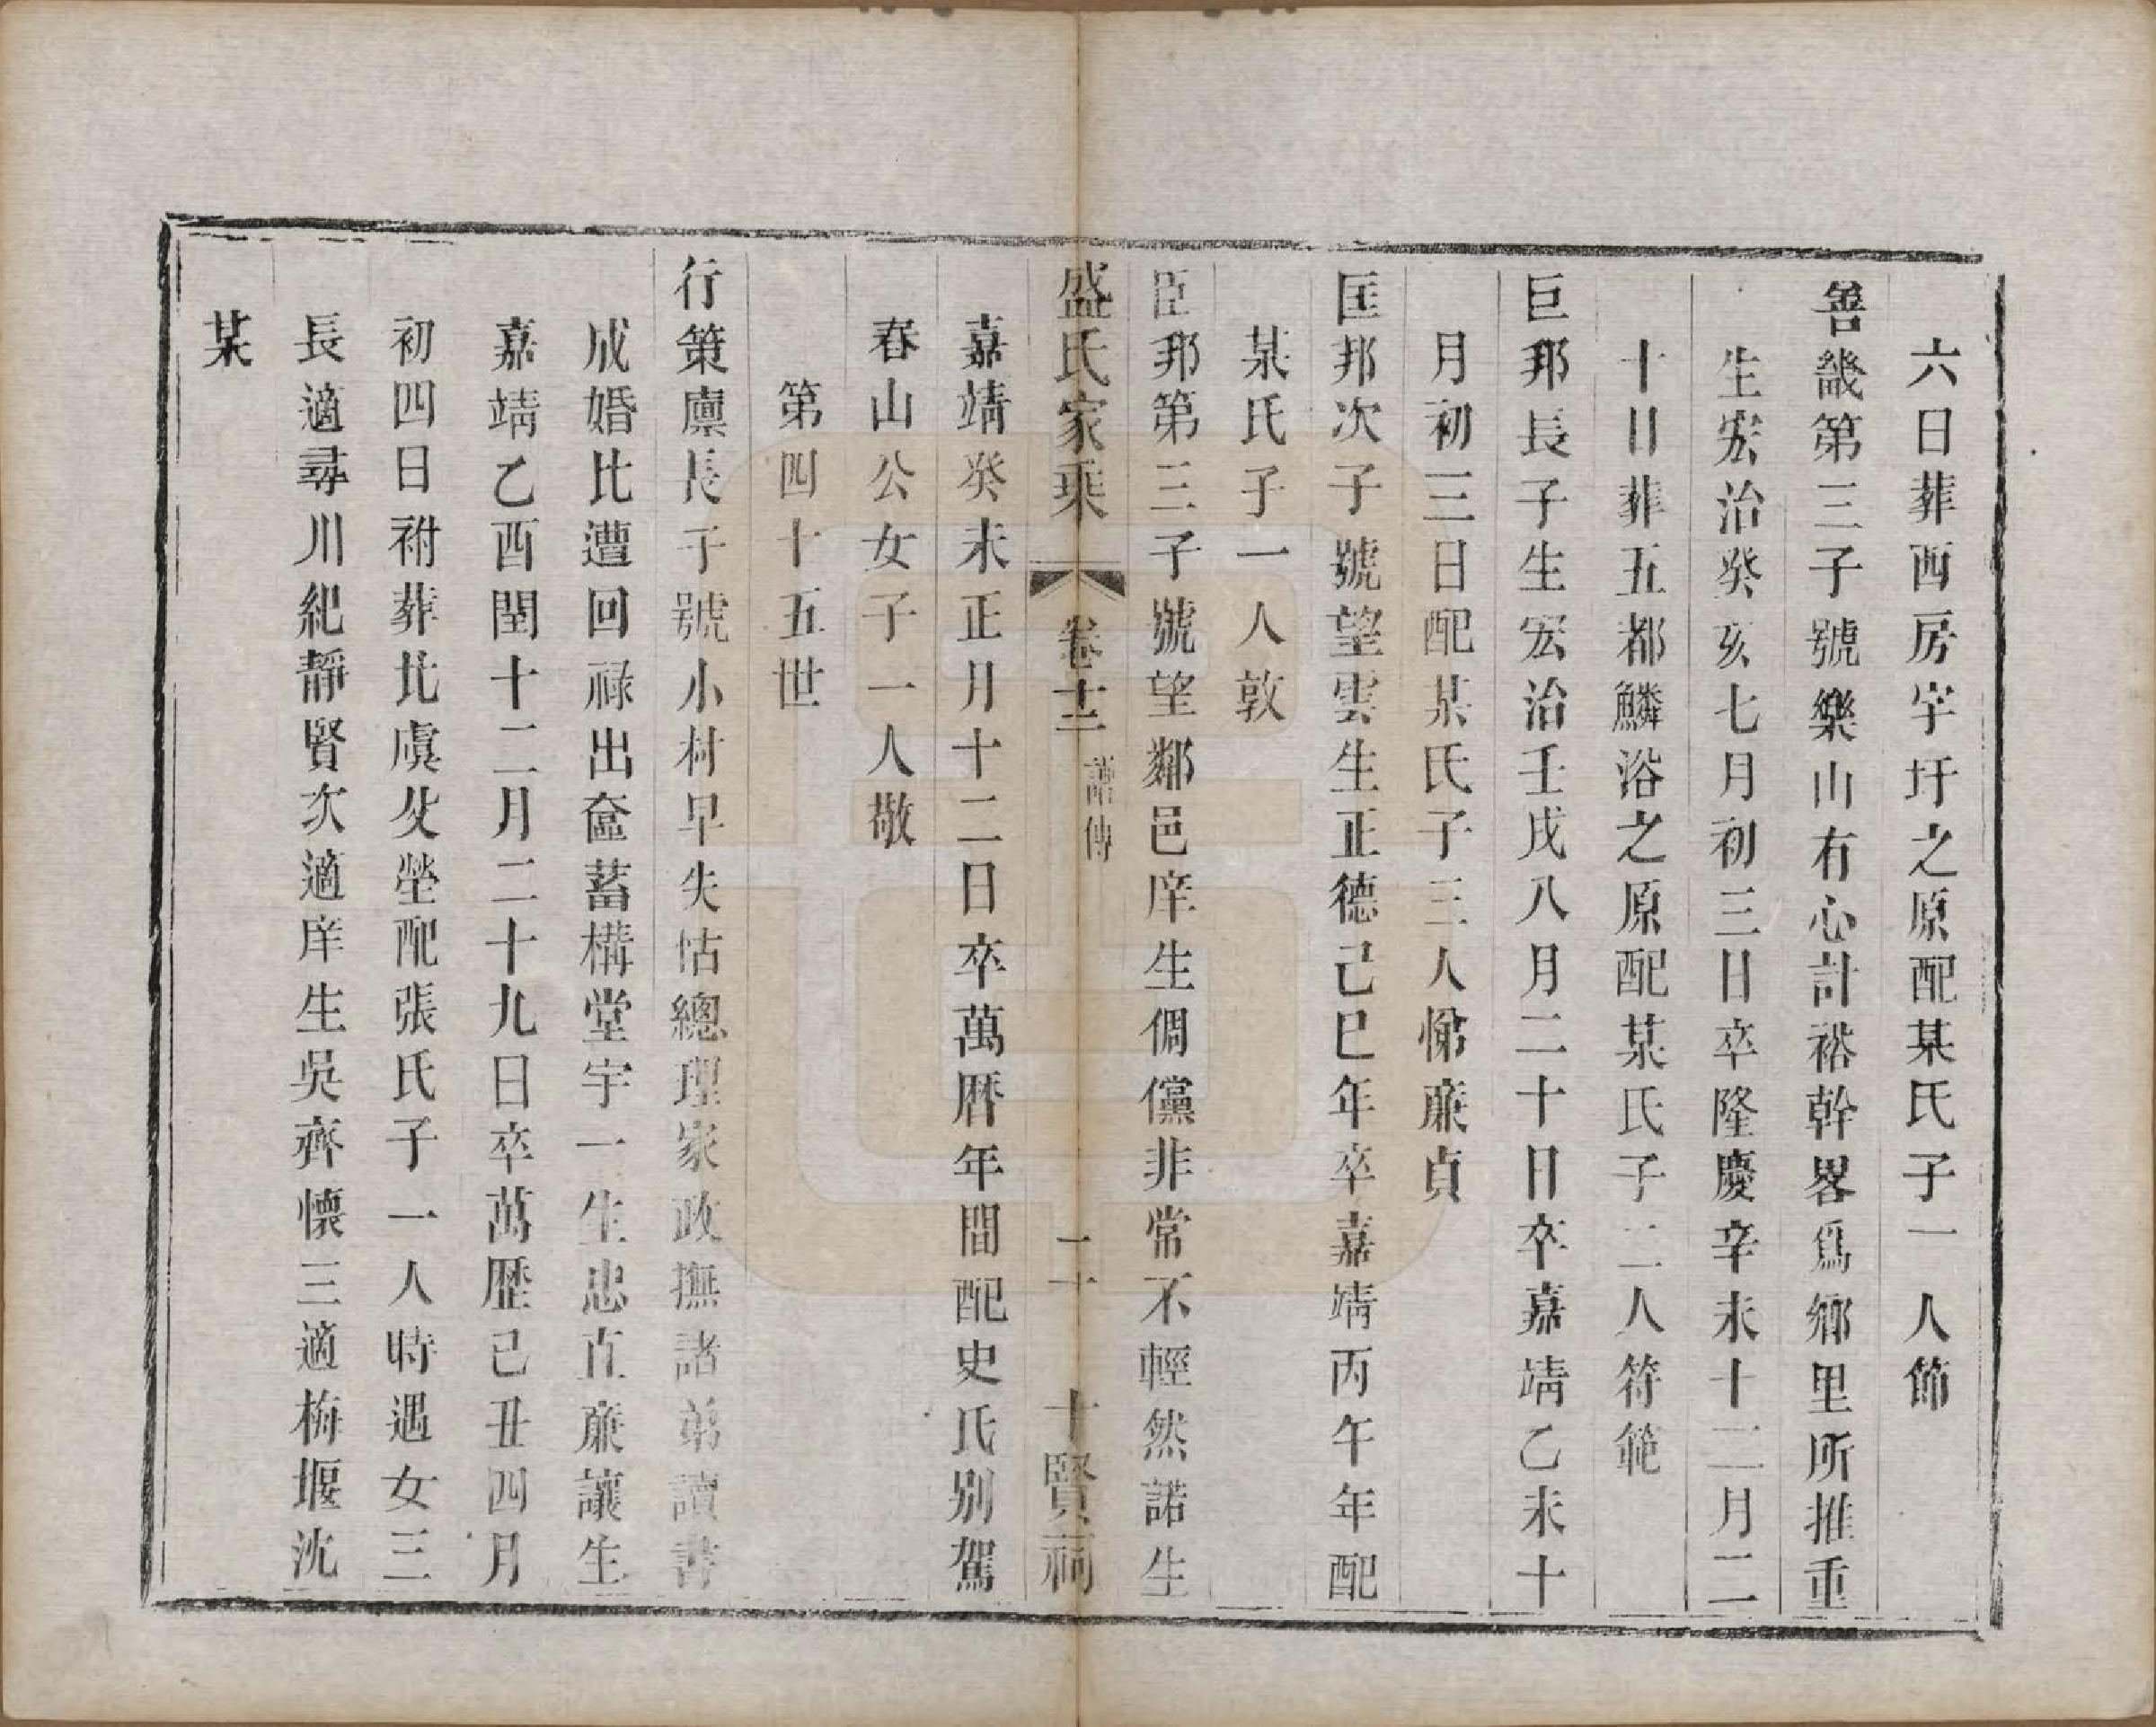 六日葬西房字圩之原配某氏子一人節
善畿第三子號樂山有心計裕幹畧爲鄉里所推重
生宏治癸亥七月初三日卒隆慶辛未十二月二
十日葬五都鱗浴之原配某氏子二人符範
巨邦長子生宏治壬戌八月二十日卒嘉靖乙未十
月初三日配某氏子三人悌廉貞
匡邦次子號望雲生正德己巳年卒嘉靖丙午年配
某氏子一人敦
臣邦第三子號望鄰邑庠生倜儻非常不輕然諾生
盛氏家乘 卷十二 譜傳 二十 十賢祠
嘉靖癸未正月十二日卒萬曆年間配史氏別駕
春山公女子一人敬
第四十五世
行策廩長子號小村早失怙總理家政撫諸弟讀書
成婚比遭回祿出奩蓄構堂宇一生忠直廉讓生
嘉靖乙酉閏十二月二十九日卒萬歷己丑四月
初四日祔葬北虞父塋配張氏子一人時遇女三
長適尋川紀靜賢次適庠生吳齊懷三適梅堰沈
某